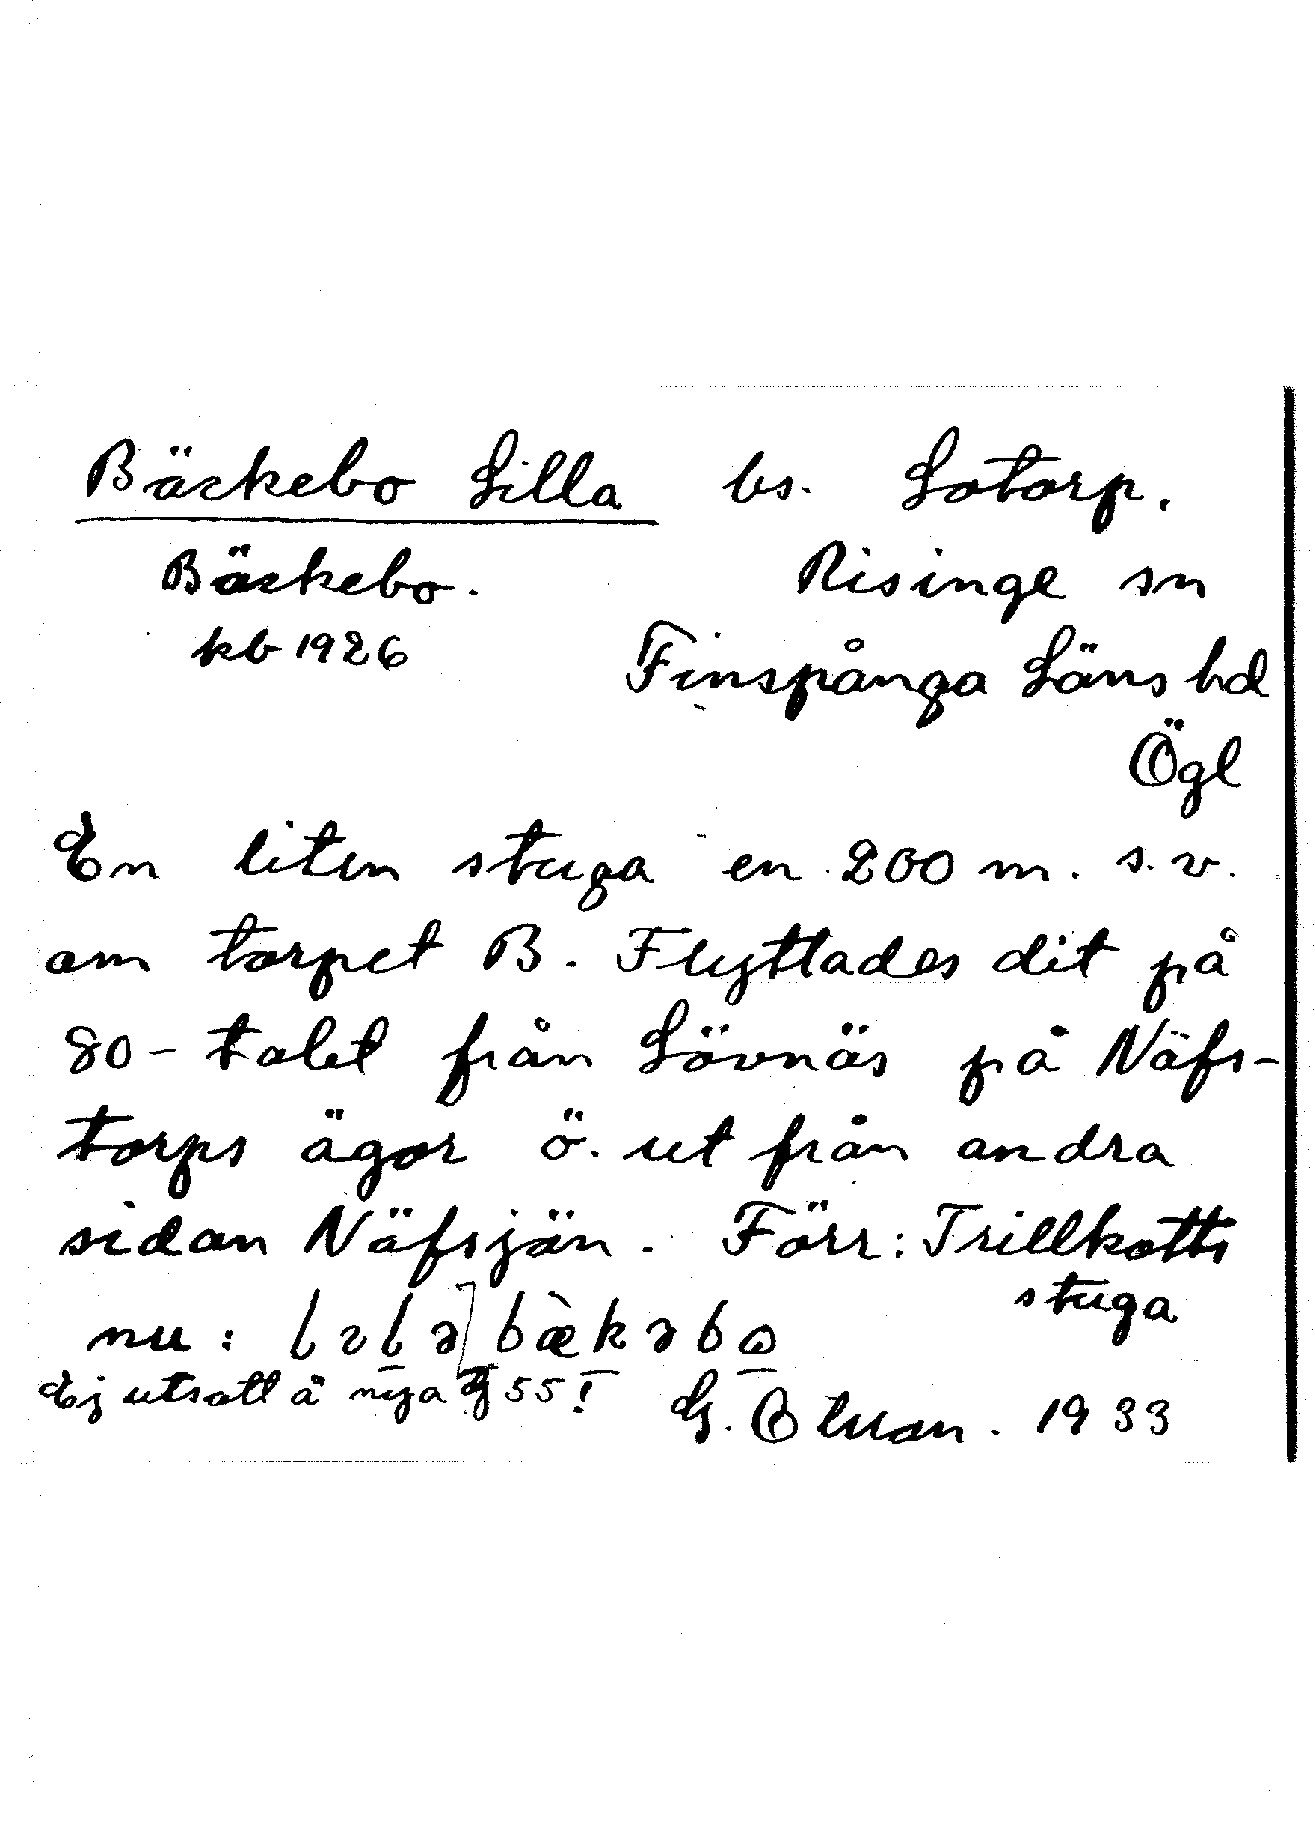 Bäckebo Lilla bs. Lotorp.
Bäckebo. Risinge sn
kb 1926 Finspånga Läns hd
Ögl
En liten stuga en 200 m. s.v.
om torpet B. Flyttades dit på
80-talet från Lövnäs på Näfs-
torps ägor ö. ut från andra
sidan Näfsjön. Förr: Trillkotts
stuga
nu: bæ̀kəbo
Ej utsatt å nya 55!
G. 1933